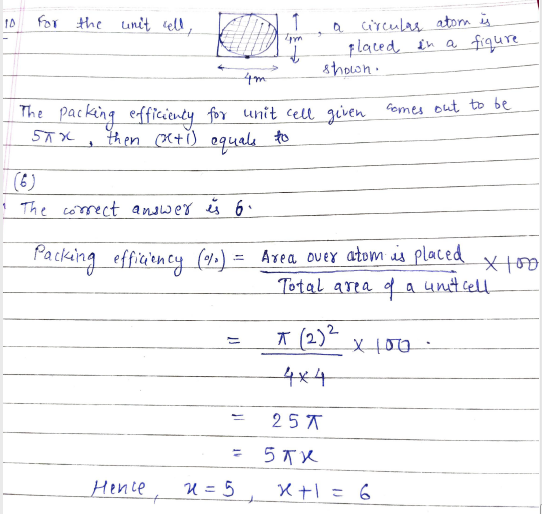 10 For the unit cell, 4m , a circular atom is
placed in a figure
shown.
4m
The packing efficiency for unit cell given comes out to be
5πx , then (x+1) equals to
(6)
The correct answer is 6.
Packing efficiency (%) = Area over atom is placed × 100
Total area of a unit cell
= π (2)² × 100 .
4×4
= 25π
= 5πx
Hence, x = 5 , x+1 = 6